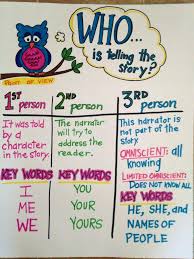 WHO...
is telling the
story?
POINT OF VIEW
1ST person
It was told
by a
character
in the story.
KEY WORDS
I
ME
WE
2ND person
The narrator
will try to
address the
reader.
KEY WORDS
YOU
YOUR
YOURS
3RD person
This narrator is
not part of the
story.
OMNISCIENT: all
knowing
LIMITED OMNISCIENT:
DOES NOT KNOW ALL
KEY WORDS
HE, SHE, AND
NAMES OF
PEOPLE